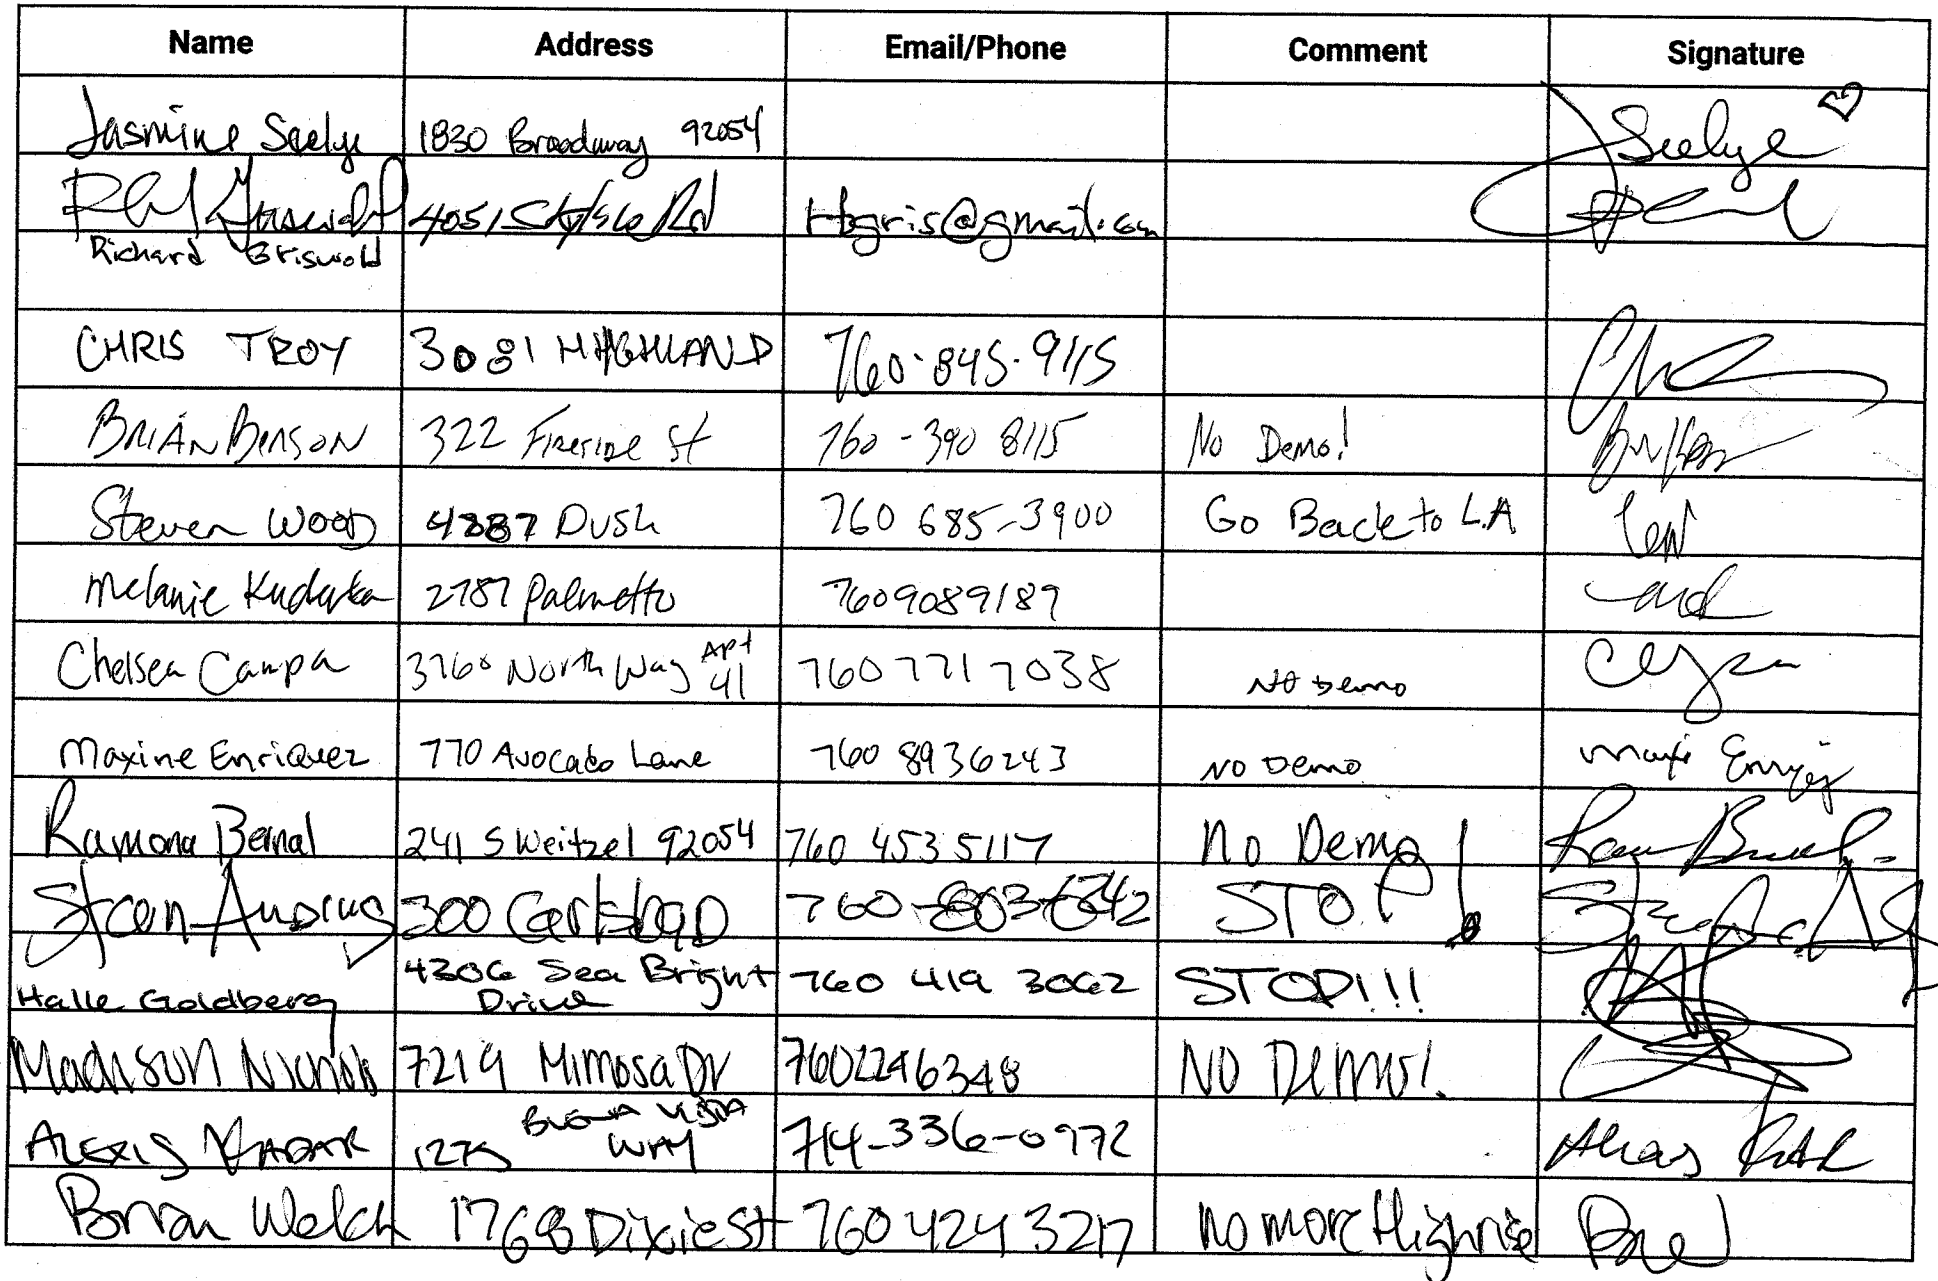 Name Address Email/Phone Comment Signature
Jasmine Seelye 1830 Broadway 92054 Seelye
4051 Rd Hbgris@gmail.com
Richard Griswold
CHRIS TROY 3081 HIGHLAND 760-845-9115
BRIAN BENSON 322 FIRESIDE St 760-390 8115 No Demo!
Steven Wood 4887 Dush 760 685-3900 Go Back to L.A
Melanie 2787 Palmetto 7609089189
Chelsea Campa 3760 North Way Apt 41 760 771 7038 NO Demo
Maxine Enriquez 770 Avocado Lane 760 8936243 NO Demo
Ramona Bernal 241 S Weitzel 92054 760 453 5117 No Demo!
300 Carlsbad 760-803-6742 STOP!
Halle Goldberg 4306 Sea Bright Drive 760 419 3062 STOP!!!
Madison Nichols 7219 Mimosa Dr 7602246348 NO Demo!
ALEXIS KADAR 1275 BUENA VISTA WAY 714-336-0972
Brian Welch 1768 Dixie St 760 424 3217 no more Highrise